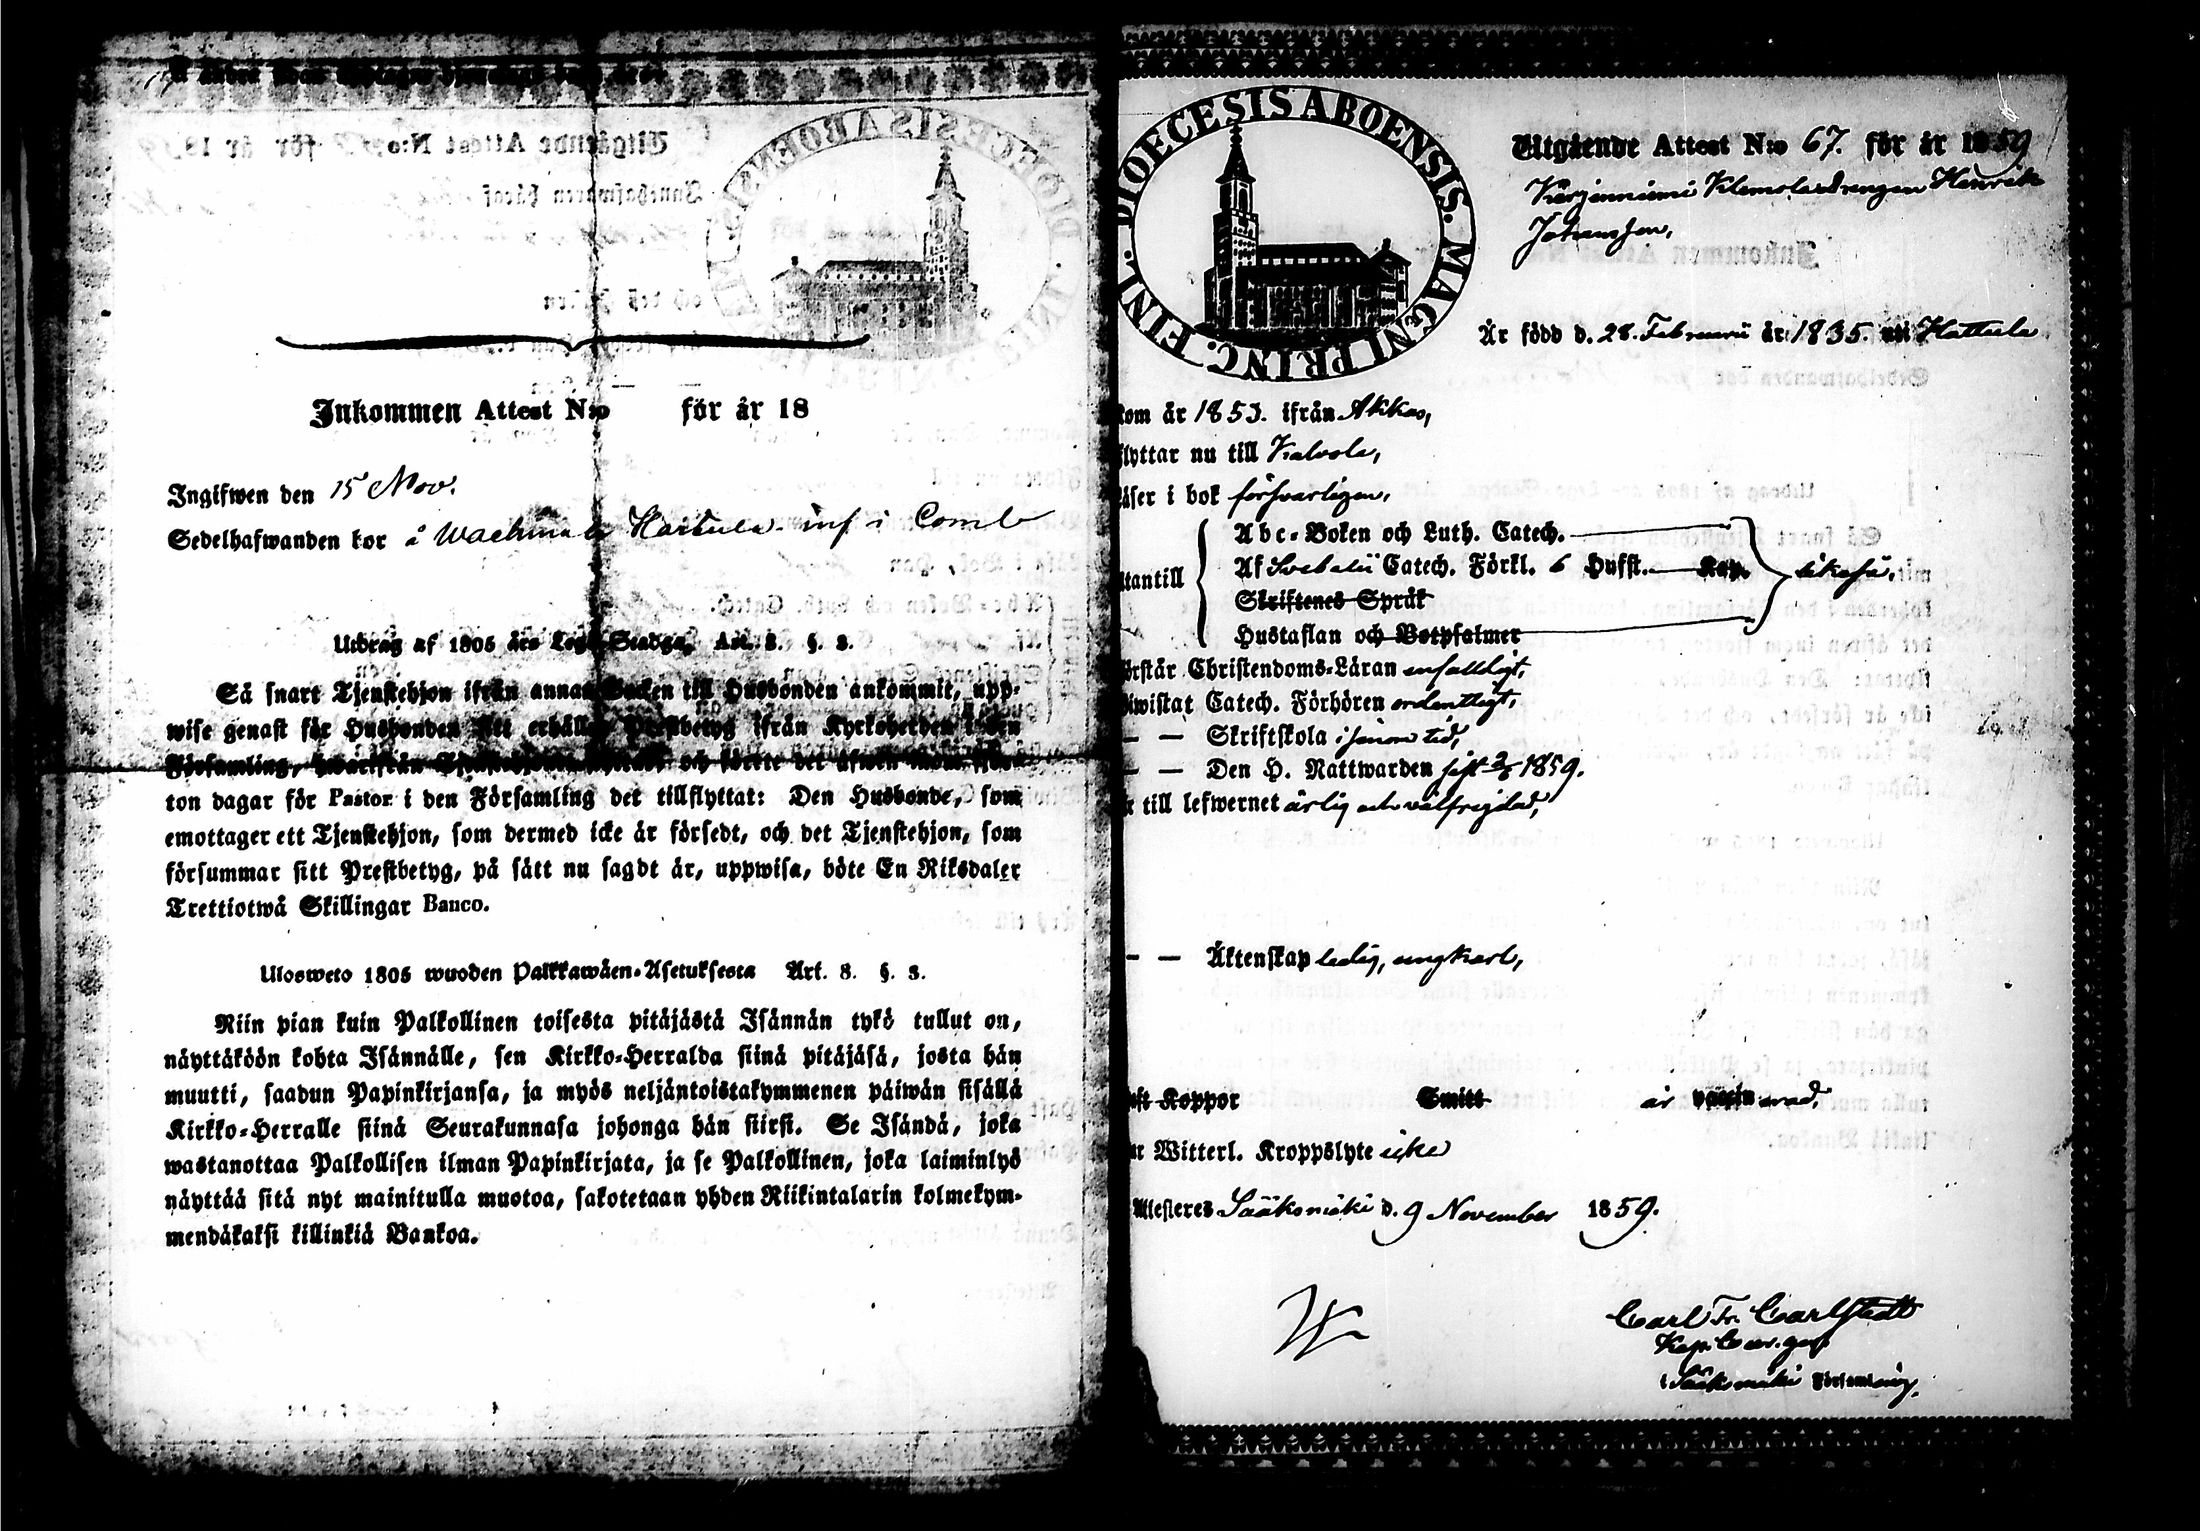 Inkommen Attest N:o för år 18
Ingifwen den 15 Nov.
Sedelhafwanden bor å inf i Comb
Utdrag af 1805 års Lego-Stadga, Art. 8. §. 3.
Så snart Tjenstehjon ifrån annan Socken till Husbonden ankommit, upp-
wise genast för Husbonden sitt erhållna Prestbetyg ifrån Kyrkoherden i den
Församling, hwarifrån och förete det
ton dagar för Pastor i den Församling det tillflyttat: Den Husbonde, som
emottager ett Tjenstehjon, som dermed icke är försedt, och det Tjenstehjon, som
försummar sitt Prestbetyg, på sätt nu sagdt är, uppwisa, böte En Riksdaler
Trettiotwå Skillingar Banco.
Ulosweto 1805 wuoden Palkkawäen-Asetuksesta Art. 8. §. 3.
Niin pian kuin Palkollinen toisesta pitäjästä Isännän tykö tullut on,
näyttäköön kohta Isännälle, sen Kirkko-Herralda siinä pitäjäsä, josta hän
muutti, saadun Papinkirjansa, ja myös neljäntoistakymmenen päiwän sisällä
Kirkko-Herralle siinä Seurakunnasa johonga hän siirsi. Se Isändä, joka
wastanottaa Palkollisen ilman Papinkirjata, ja se Palkollinen, joka laiminlyö
näyttää sitä nyt mainitulla muotoa, sakotetaan yhden Riikintalarin kolmekym-
mendäkaksi killinkiä Bankoa.
DIOECESIS ABOENSIS. MAGNI PRINC. FINL.
Utgående Attest N:o 67. för år 1859
Kärjenniemi Klemola drengen Henrik
Johansson,
Är född d. 28. Februarii år 1835. uti Hattula
kom år 1853. ifrån Akkas,
flyttar nu till Kalvola,
läser i bok försvarligen,
Abc-Boken och Luth. Catech.
utantill Af Svebelii Catech. Förkl. 6 Hufst. Kap. likaså,
Skriftenes Språk
Hustaflan och Botpsalmer
örstår Christendoms-Läran enfaldigt,
iwistat Catech. Förhören ordentligt,
— — Skriftskola i sinom tid,
— — Den H. Nattwarden sist 1859.
är till lefwernet ärlig och välfrejdad,
— — Äktenskap ledig, ungkarl,
haft Koppor Smitt är vaccinerad,
ar Witterl. Kroppslyte icke
Attesteres Sääksmäki d. 9 November 1859.
Carl Fr. Carlstedt
Kap.
i Sääksmäki Församling.